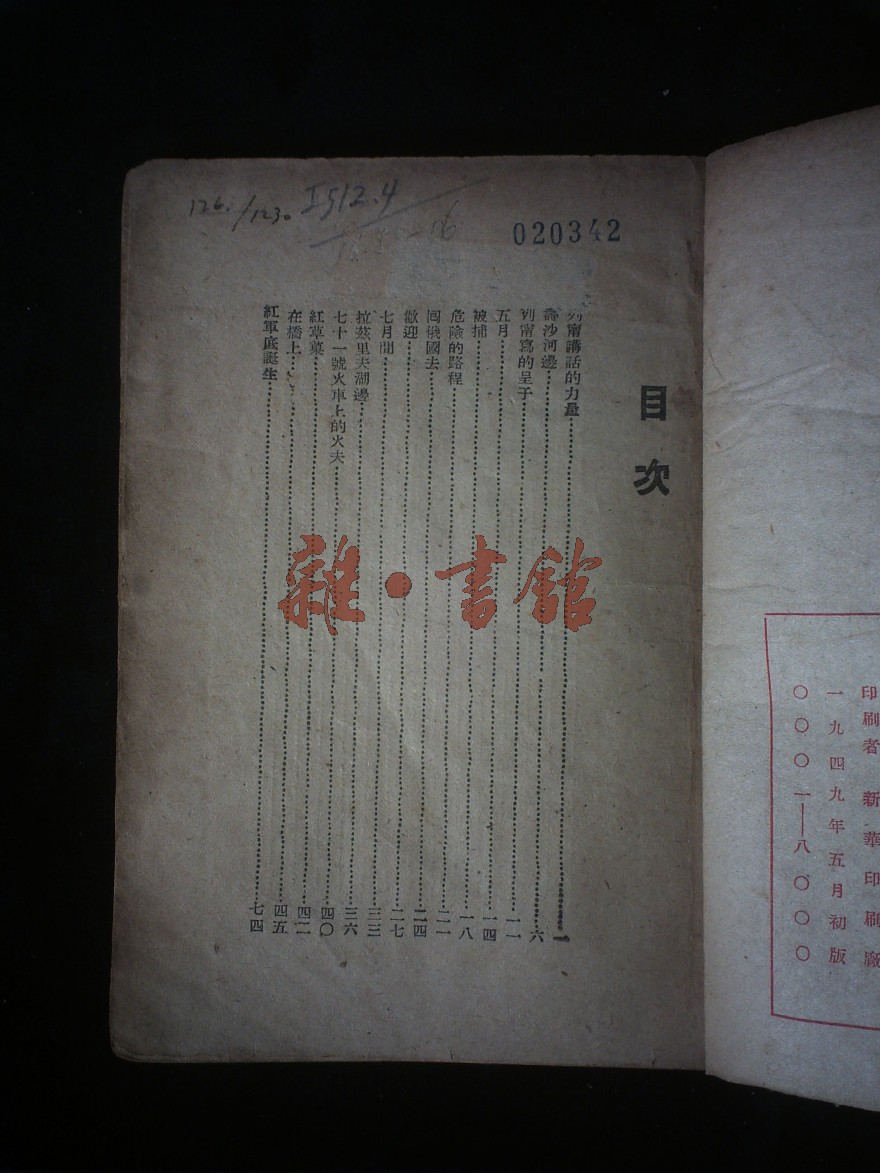 126./123. I512.4
020342
目次
列甯講話的力量……一
沙河邊……六
列甯寫的呈子……一一
五月……一四
被捕……一八
危險的路程……二一
回俄國去……二四
歡迎……二七
七月間……三三
拉茲里夫湖邊……三六
七十一號火車上的火夫……四〇
紅草菓……四二
在橋上……四五
紅軍底誕生……七四
雜·書館
印刷者 新華印刷廠
一九四九年五月初版
〇〇〇一—八〇〇〇